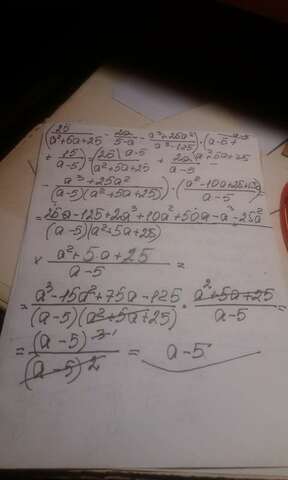 (25/(a²+5a+25) - 2a/(5-a) - (a³+25a²)/(a³-125)) · (a-5 +
+ 15/(a-5)) = (25/(a²+5a+25) + 2a/(a-5) -
- (a³+25a²)/((a-5)(a²+5a+25))) · (a²-10a+25+15a)/(a-5) =
= (25a-125+2a³+10a²+50a-a³-25a²)/((a-5)(a²+5a+25)) ×
× (a²+5a+25)/(a-5) =
= (a³-15a²+75a-125)/((a-5)(a²+5a+25)) · (a²+5a+25)/(a-5) =
= (a-5)³/(a-5)² = a-5